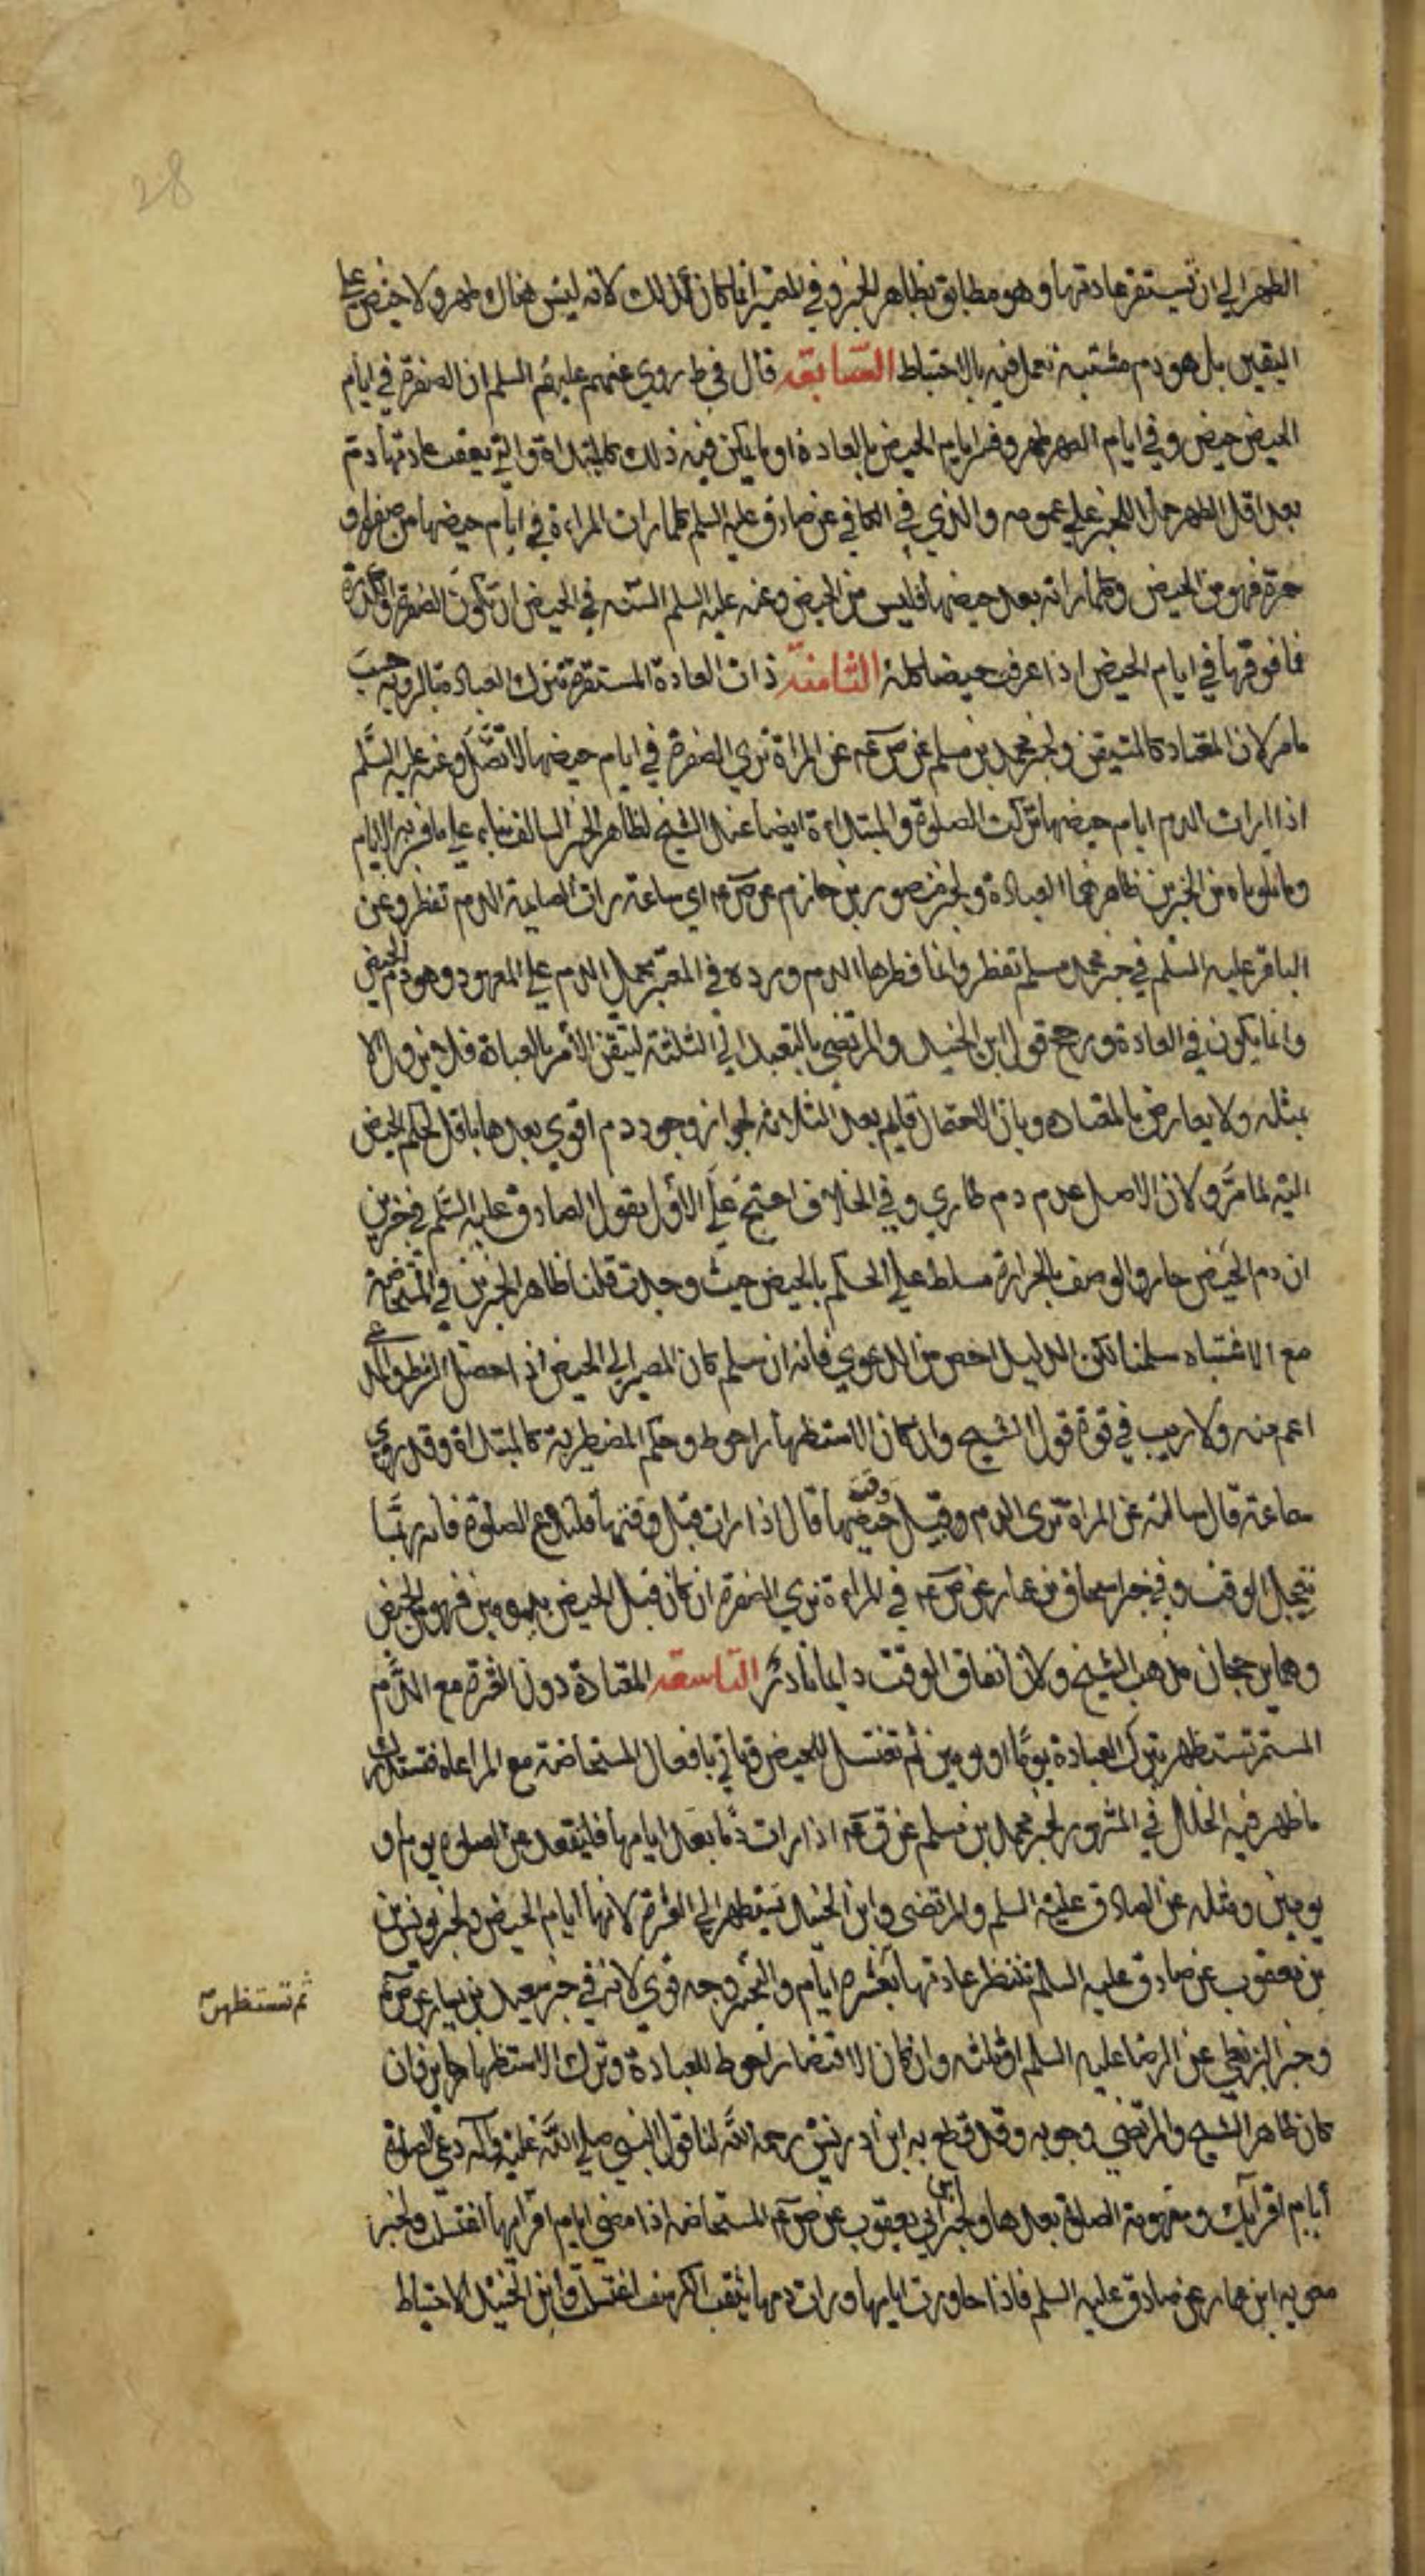 28
الطهر الي ان تستقر عادتها وهو مطابق لظاهر الخبر وفي المعتبر انما كان كذلك لانه ليس هناك طهر ولا حيض علي
اليقين بل هو دم مشتبه تعمل فيه بالاحتياط السابعه قال في ط روي عنهم عليهم السلم ان الصفرة في ايام
الحيض حيض وفي ايام الطهر طهر وفسر ايام الحيض بالعادة او ما يمكن فيه ذلك كالمبتداة والتي تعقب عادتها دم
بعد اقل الطهر حملا للخبر علي عمومه والذي في الكافي عن صادق عليه السلم كلما رات المراءة في ايام حيضها من صفرة او
حمرة فهو من الحيض وكلما راته بعد حيضها فليس من الحيض وعنه عليه السلم السنه في الحيض ان تكون الصفرة والكدرة
فما فوقها في ايام الحيض اذا عرفت حيضا كله الثامنه ذات العادة المستقرة تترك العبادة بالروية حسب
ما مر لان المعتاد كالمتيقن ولخبر محمد بن مسلم عن ص عم عن المراة تري الصفرة في ايام حيضها لا تصلي وعنه عليه السلم
اذا رات الدم ايام حيضها تركت الصلوة والمبتداءة ايضا عند الشيخ لظاهر الخبر السالف بناء علي ما فسر به الايام
وما تلوناه من الخبرين ظاهرهما العبادة ولخبر منصور بن حازم عن ص عم اي ساعة رات الصايمة الدم تفطر وعن
الباقر عليه السلم في خبر محمد مسلم تفطر وانما فطرها الدم ورده في المعتبر بحمل الدم علي المعهود وهو دم الحيض
وانما يكون في العادة ورجح قول ابن الجنيد والمرتضي بالتعبد الي الثلثة لتيقن الأمر بالعبادة فلا يزول الا
بمثله ولا يعارض بالمعتاده وبان الاحتمال قايم بعد الثلاثه لجواز وجود دم اقوي بعدها ناقل لحكم الحيض
اليه لما مر ولان الاصل عدم دم طاري وفي الخلاف احتج علي الاول بقول الصادق عليه السلم في خبرين
ان دم الحيض حار والوصف بالحرارة مسلط علي الحكم بالحيض حيث وجدت قلنا ظاهر الخبرين في المستحاضة
مع الاشتباه سلمنا لكن الدليل اخص من الدعوي فانه ان سلم كان المصير الي الحيض اذ احصل الشرط والمدعي
اعم منه ولا ريب في قوة قول الشيخ وان كان الاستظهار احوط وحكم المضطربة كالمبتداة وقد روي
سماعة قال سالته عن المراة تري الدم وقبل وقت حيضها قال اذا رات قبل وقتها فلتدع الصلوة فانه ربما
تعجل الوقت وفي خبر اسحاق بن عمار عن ص عم في المراءة تري الصفرة ان كان قبل الحيض بيومين فهو من الحيض
وهما يرجحان مذهب الشيخ ولان اتفاق الوقت دايما نادر التاسعه المعتادة دون العشرة مع الدم
المستمر تستظهر بترك العبادة يوما او يومين ثم تغتسل للحيض وتاتي بافعال المستحاضة مع المراعاه فتستدرك
ما ظهر فيه الخلل في المشهور لخبر محمد بن مسلم عن ق عم اذا رات دما بعد ايامها فليقعد عن الصلوة يوم او
يومين ومثله عن الصادق عليه السلم والمرتضي وابن الجنيد تستظهر الي العشرة لانها ايام الحيض ولخبر يونس بن
بن يعقوب عن صادق عليه السلم تنتظر عادتها بعشرة ايام والتخيير وجه قوي لانه في خبر سعيد بن يسار عن ص عم
ثم تستظهر ص
وخبر البزنطي عن الرضا عليه السلم او ثلثه وان كان الاقتصار احوط للعبادة وترك الاستظهار جايز وان
كان ظاهر الشيخ والمرتضي وجوبه وقد قطع به ابن ادريس رحمه الله لنا قول النبي صلي الله عليه وآله دعي الصلوة
أيام اقرآيك ومفهومه الصلوة بعدها ولخبر ابن ابي يعقوب عن ص عم المستحاضه اذا مضي ايام اقرايها اغتسلت ولخبر
معويه ابن عمار عن صادق عليه السلم فاذا جاوزت ايامها ورات دمها يثقب الكرسف اغتسلت وابن الجنيد الاحتياط